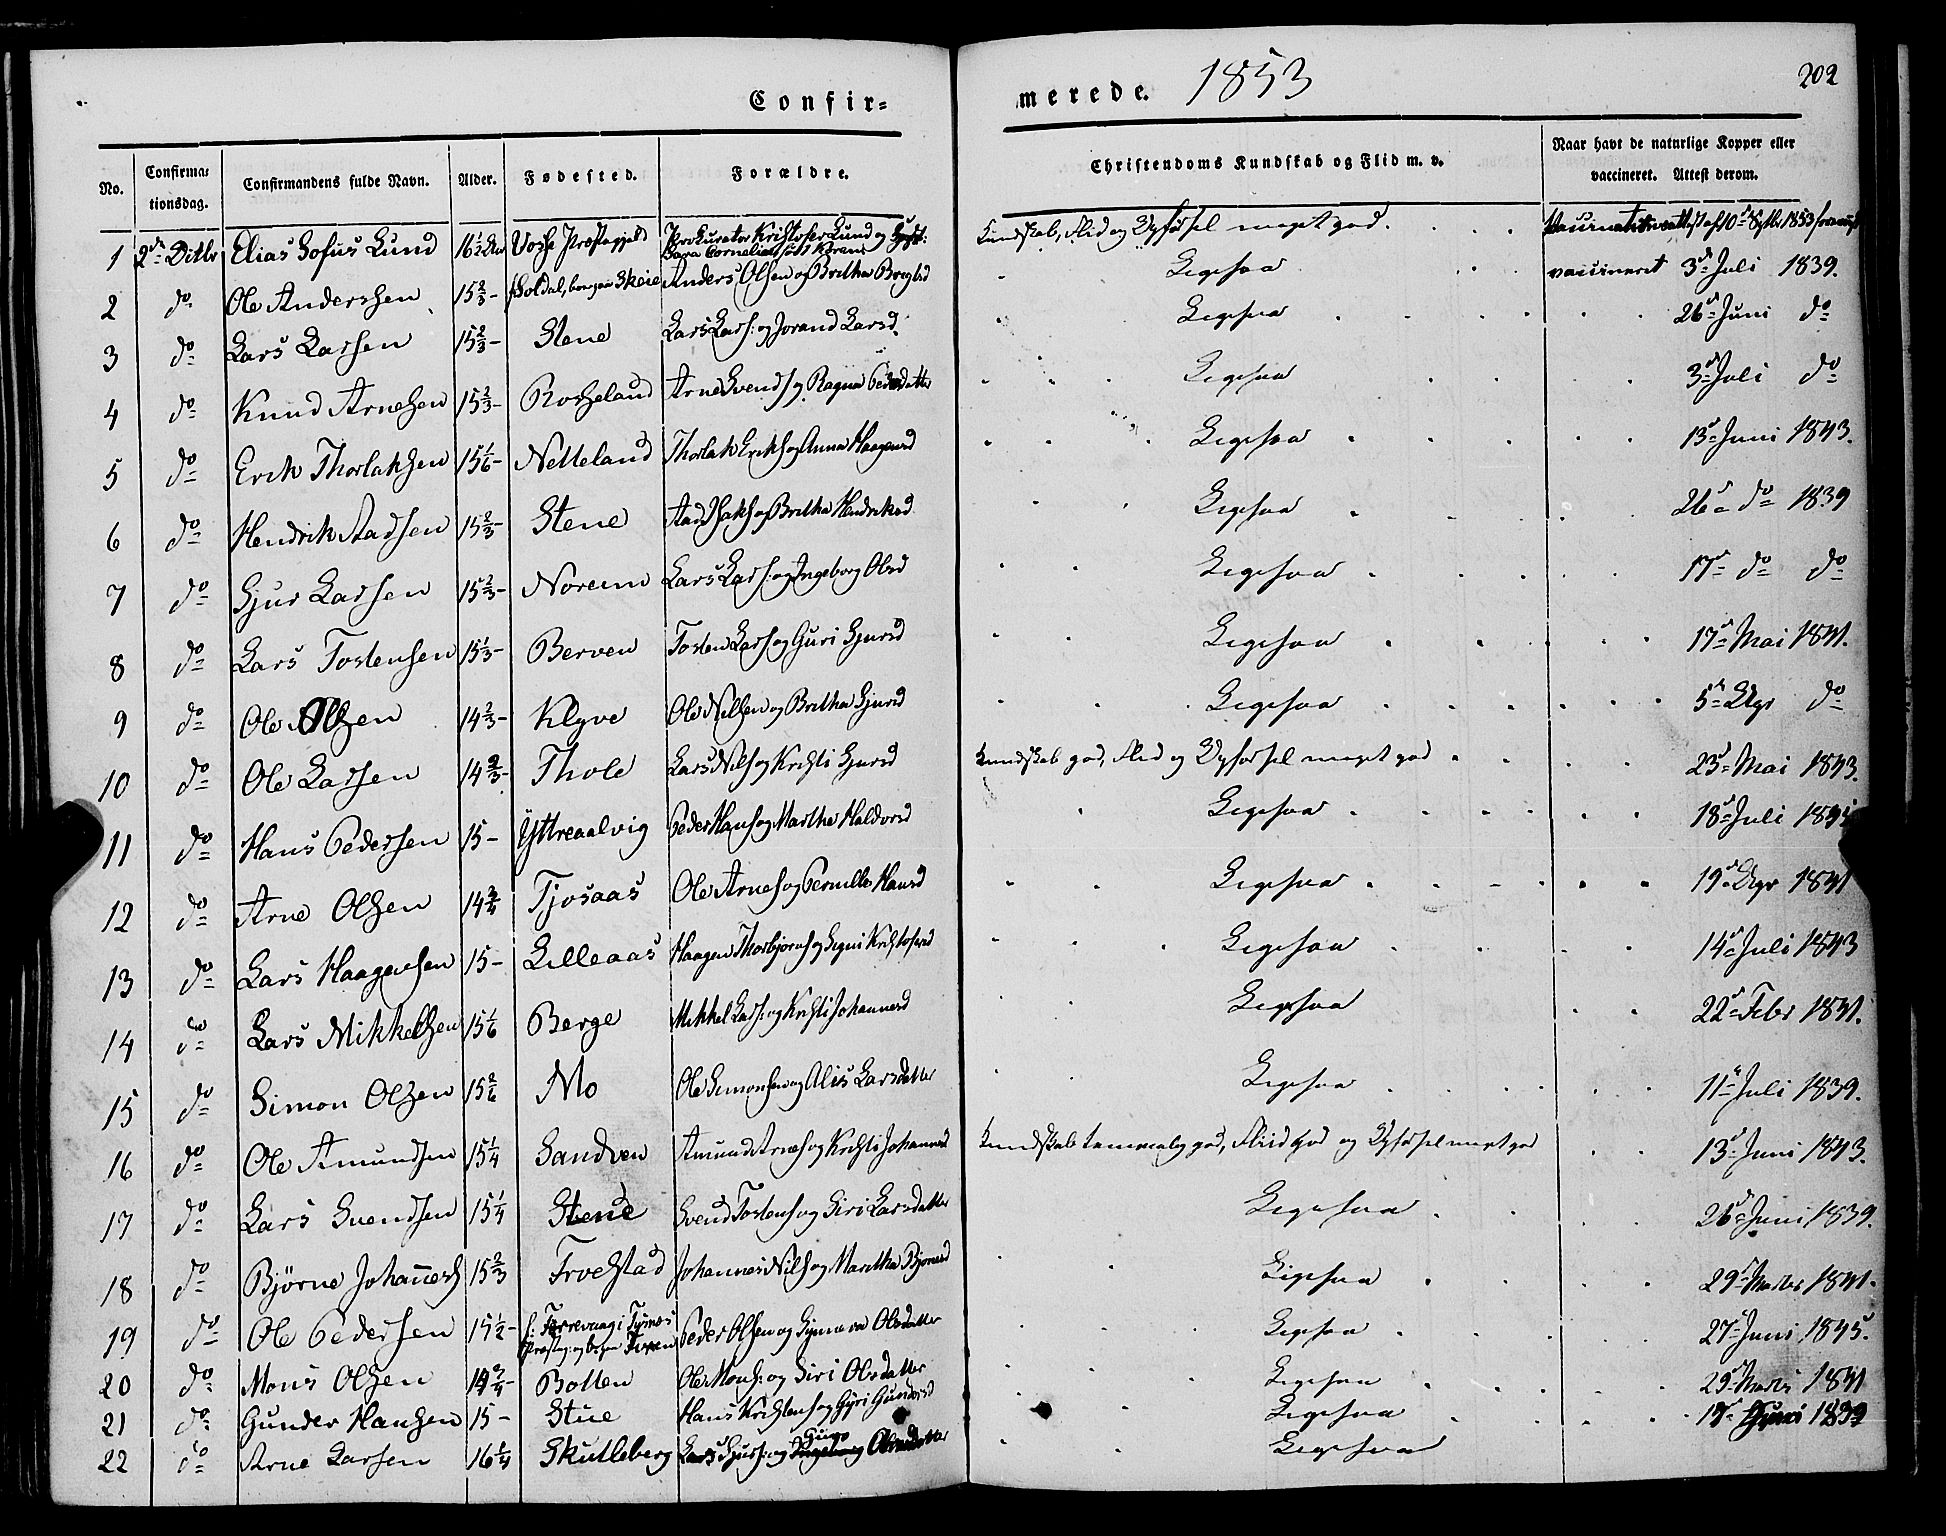 Confir=
merede. 1853
202
No. Confirmationsdag. Confirmandens fulde Navn. Alder. Fødested. Forældre. Christendoms Kundskab og Flid m. v. Naar havt de naturlige Kopper eller vaccineret. Attest derom.
1 2den Octbr Elias Sofus Lund 16 1/2 Vosse Præstegjeld Prokurator Kristofer Lund og Sara Cornelia født Krans Kundskab, Flid og Opførsel meget god. Vaccinationsattest af 10de Septbr 1853
2 do Ole Andersen 15 2/3 - Skeie Anders Olsen og Britha Ligesaa vaccineret 3de Juli 1839.
3 do Lars Larsen 15 2/3 - Stene Lars Lars: og Jorand Larsd. Ligesaa 26de Juni do
4 do Knud Arnesen 15 2/3 - Rosseland Arne Svends og Ragna Pedersdatter Ligesaa 3de Juli do
5 do Erik Thorlaksen 15 1/6 - Netteland Thorlak Eriks og Anna Haagensd Ligesaa 13de Juni 1843.
6 do Hendrik Aadsen 15 2/3 - Stene Aad Isaks og Britha Hendriksd Ligesaa 26de do 1839
7 do Sjur Larsen 15 2/3 - Noreim Lars Lars: og Ingeborg Olsd Ligesaa 17de do do
8 do Lars Tostensen 15 1/3 - Berven Tosten Lars og Guri Sjursd Ligesaa 17de Mai 1841.
9 do Ole Olsen 14 2/3 - Klyve Ole Nilsen og Britha Sjursd Ligesaa 5te do
10 do Ole Larsen 14 2/3 - Thole Lars Nils og Kristi Sjursd Kundskab god, Flid og Opførsel meget god 23de Mai 1843.
11 do Hans Pedersen 15 - Yttreaalvig Peder Hans og Martha Haldorsd Ligesaa 18de Juli
12 do Arne Olsen 14 3/4 Tjosaas Ole Arnes og Pernille Hansd Ligesaa 19de 1841
13 do Lars Haagensen 15 - Lilleaas Haagen Thorbjørns og Signi Kristofersd Ligesaa 14de Juli 1843
14 do Lars Mikkelsen 15 1/6 Berge Mikkel Lars: og Kristi Johannesd Ligesaa 22de Febr 1841.
15 do Simon Olsen 15 2/6 Mo Ole Simonsen og Alis Larsdatter Ligesaa 11te Juli 1839.
16 do Ole Amundsen 15 1/4 Sandven Amund Arnes og Kristi Johannesd Kundskab temmelig god, Fliid god og Opførsel meget god 13de Juni 1843.
17 do Lars Svendsen 15 1/4 Stene Svend Tostens og Siri Larsdatter Ligesaa 26de Juni 1839.
18 do Bjørne Johannes 15 2/3 Froestad Johannes Nils og Maritha Bjørnesd Ligesaa 29de Marts 1841.
19 do Ole Pedersen 15 1/2 - i Tysnes Præsteg: og Peder Olsen og Olsdatter Ligesaa 27de Juni 1845.
20 do Mons Olsen 14 3/4 - Botten Ole Mons: og Siri Olsdatter Ligesaa 29de Marts 1841
21 do Gunder Hansen 15 - Stue Hans Kristens og Gyri Gundersd Ligesaa Juni 1839
22 do Arne Larsen 16 1/4 Skutleberg Lars Sjurs: og Olsdatter Ligesaa